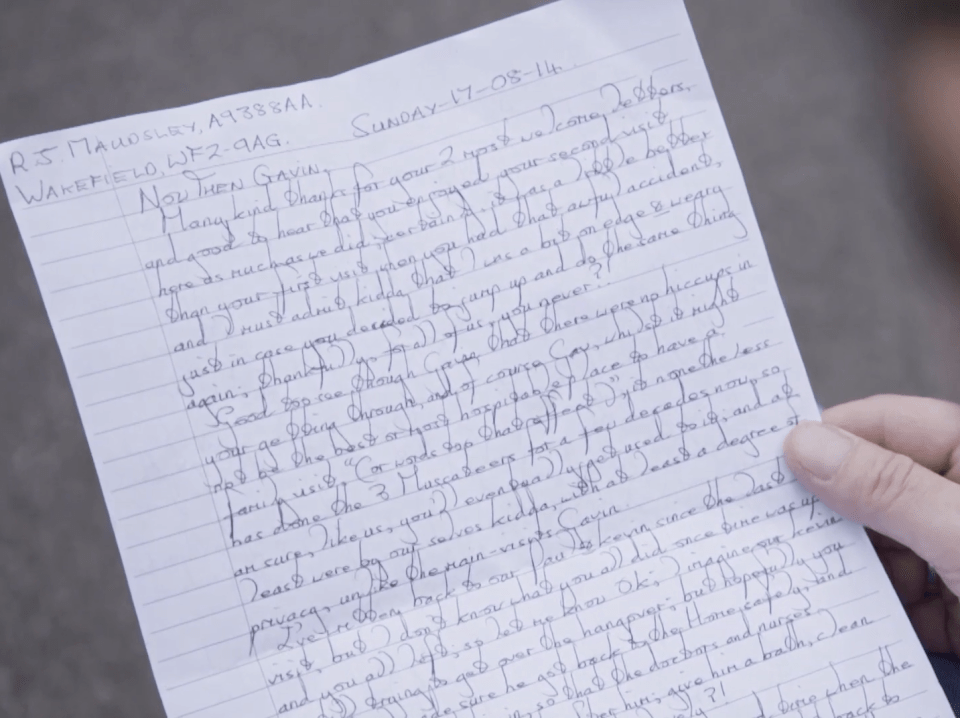 R.J. MAUDSLEY, A9388AA.
SUNDAY-17-08-14.
WAKEFIELD, WF2-9AG.
NOW THEN GAVIN,
Many kind thanks for your 2 most welcome letters,
and good to hear that you enjoyed your second visit
here as much as we did, certainly it was a little better
than your first visit when you had that awful accident,
and I must admit kidda that I was a bit on edge & weary
just in case you decided to jump up and do the same thing
again, thankfully for all of us, you never?!
Good to see though Gavin, that there were no hiccups in
your getting through, and of course Gav, whilst it might
not be the best or most hospitable place to have a
family visit, "Cor words to that effect", it nonetheless
has done the 3 Muscateers for a few decades now, so
am sure, like us, you'll eventually get used to it, and at
least were by our selves kidda, with at least a degree of
privacy, unlike the main-visits Gavin.
I've written back to our Paul & Kevin since the last
visit, but I don't know what you all did once time was up
and you all left, so let me know OK; I imagine our Kevin
still trying to get over the hangover, but hopefully you
made sure he got back to the Home safely, and
in, so that the doctors and nurses
him, give him a bath, clean
?!
when the
back to